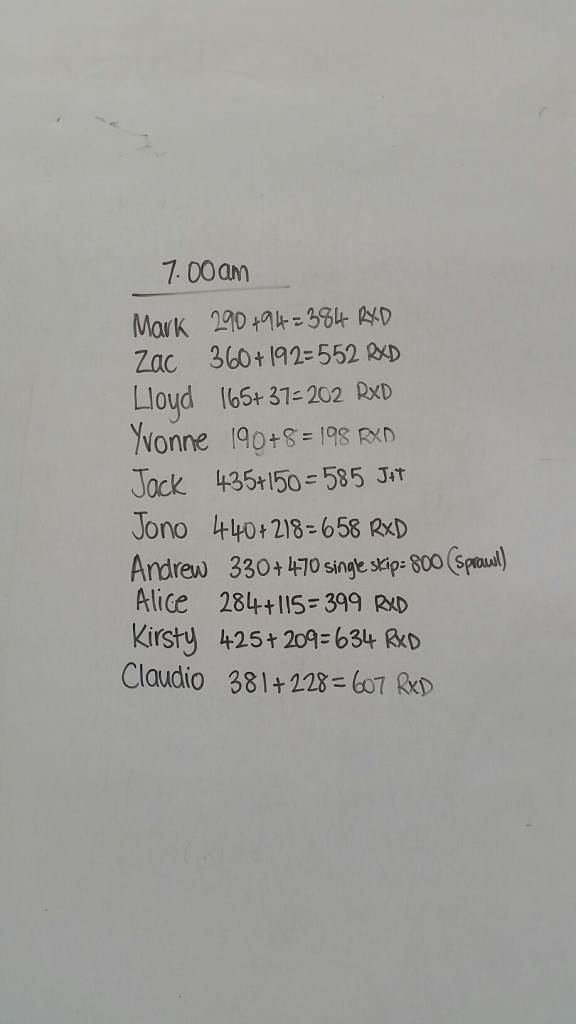 7.00am
Mark 290+94=384 RXD
Zac 360+192=552 RXD
Lloyd 165+37=202 RXD
Yvonne 190+8=198 RXD
Jack 435+150=585 J+T
Jono 440+218=658 RXD
Andrew 330+470 single skip=800 (Sprawl)
Alice 284+115=399 RXD
Kirsty 425+209=634 RXD
Claudio 381+228=607 RXD